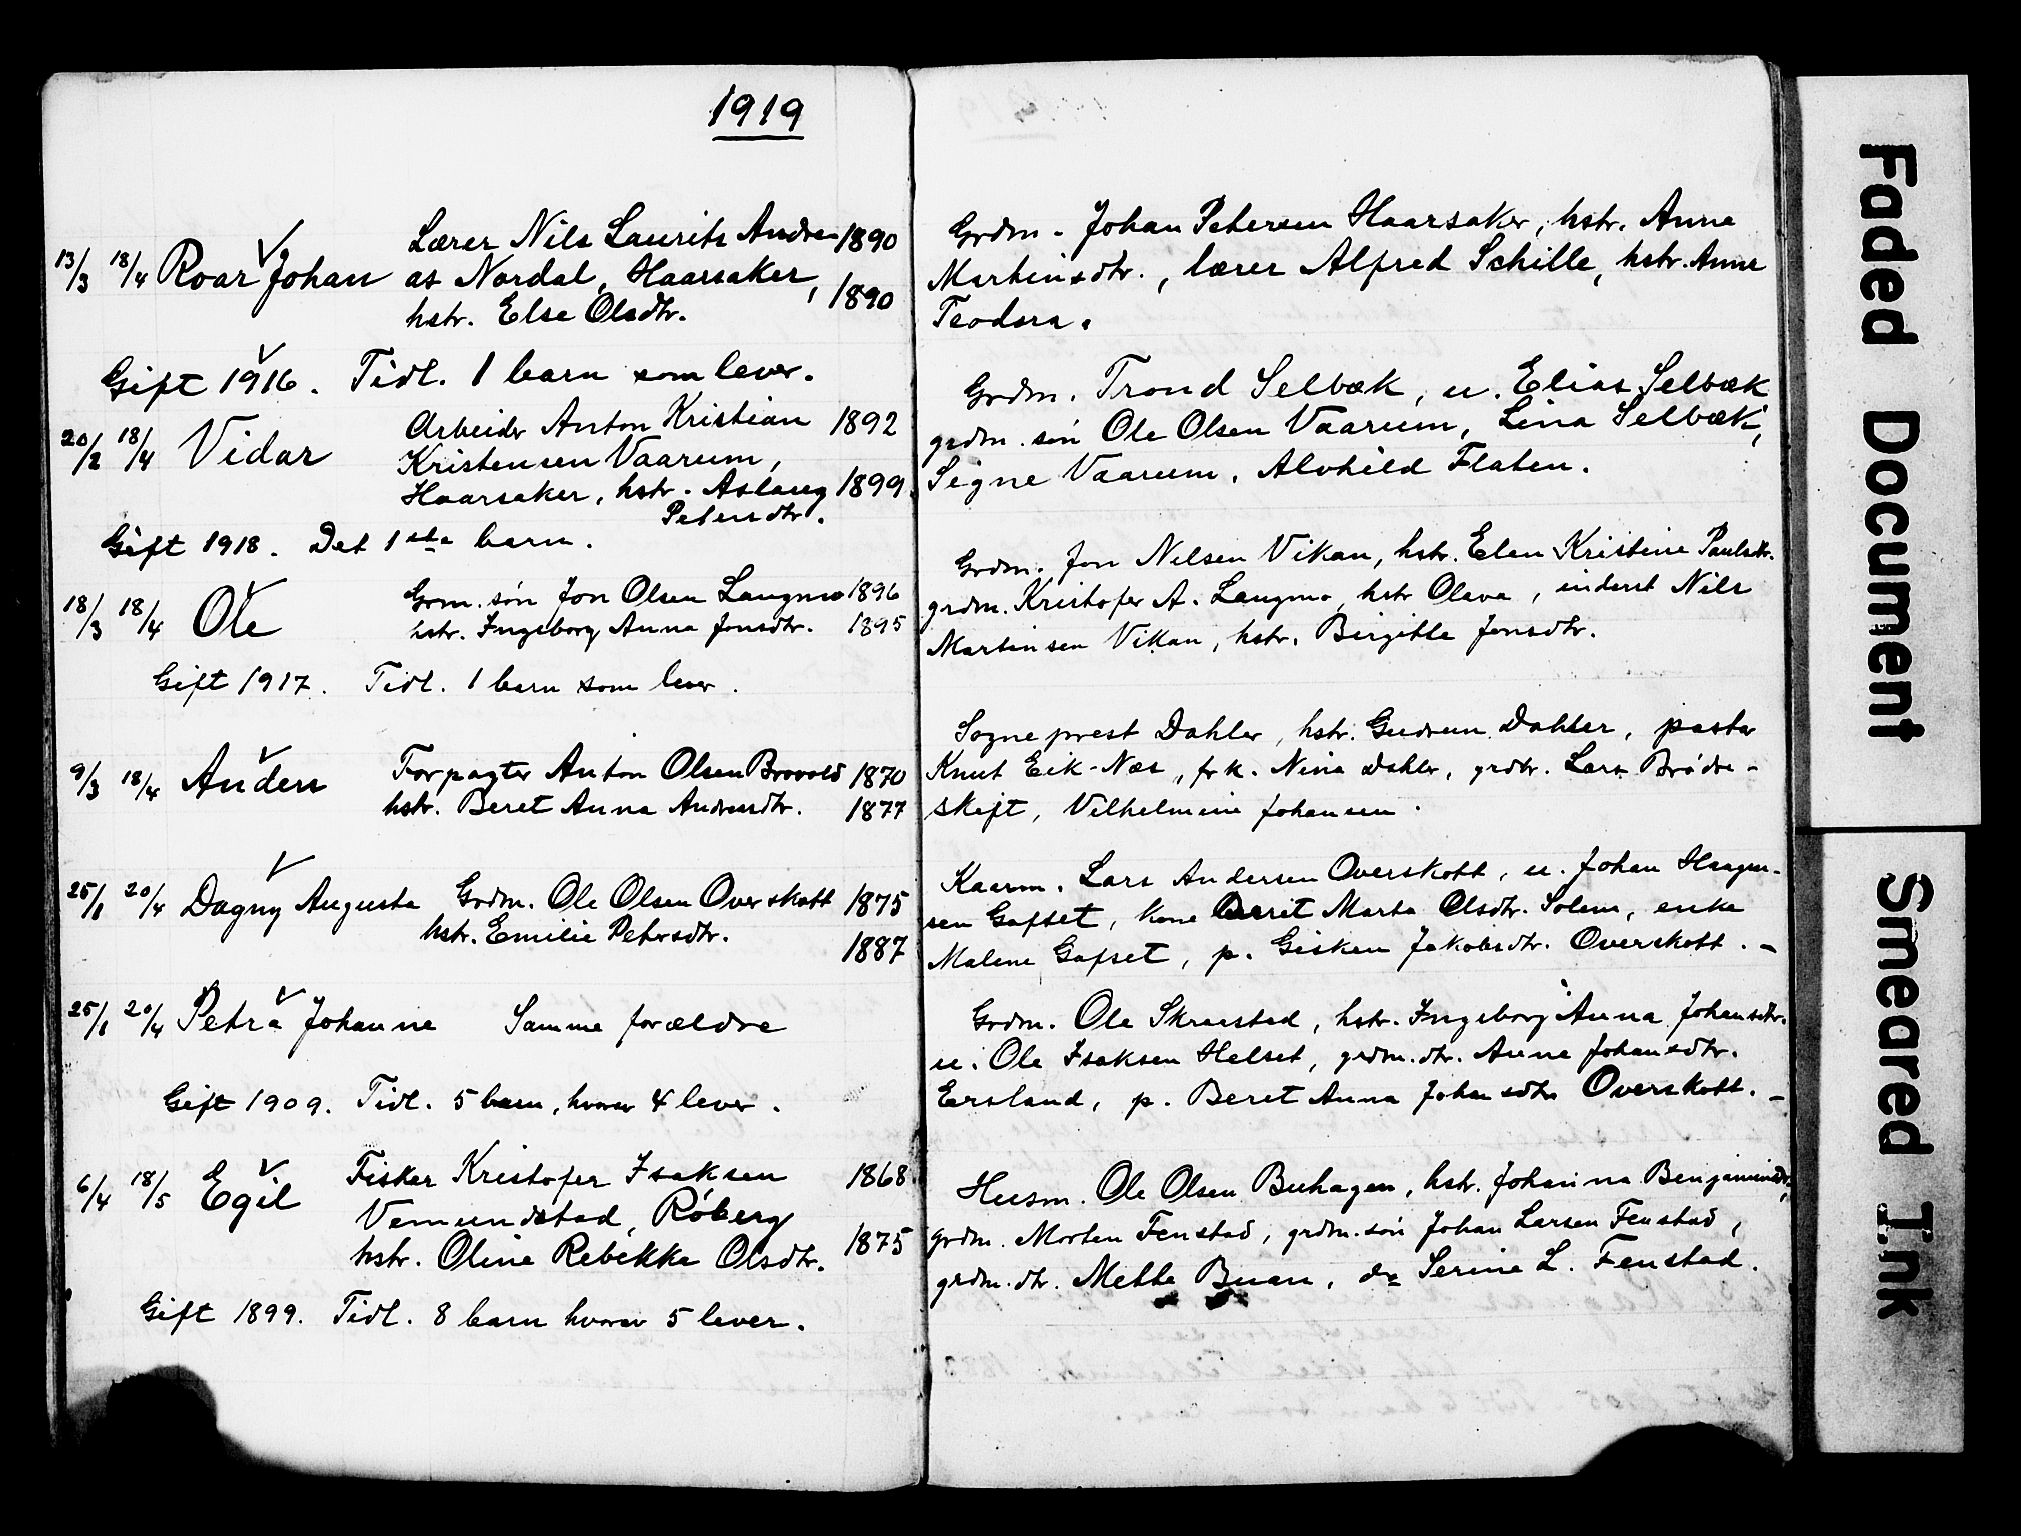 1919
13/3 18/4 Roar Johan Lærer Nils Laurits Andre- 1890
as Nordal, Haarsaker, 1890
hstr. Else Olsdtr.
Gift 1916. Tidl. 1 barn som lever.
20/2 18/4 Vidar Arbeider Anton Kristian 1892
Kristensen Vaarum,
Haarsaker, hstr. Aslaug 1899.
Petersdtr.
Gift 1918. Det 1ste barn.
18/3 18/4 Ole Grm. søn Jon Olsen Langmo 1896
hstr. Ingeborg Anna Jonsdtr. 1895
Gift 1917. Tidl. 1 barn som lever.
9/3 18/4 Anders Forpagter Anton Olsen Brovold 1870
hstr. Beret Anna Andersdtr. 1877
25/1 20/4 Dagny Augusta Grdm. Ole Olsen Overskott 1875
hstr. Emilie Petersdtr. 1887
25/1 20/4 Petra Johanne Samme forældre
Gift 1909. Tidl. 5 barn, hvorav 4 lever.
6/4 18/5 Egil Fisker Kristofer Isaksen 1868
Vemundstad, Røberg
hstr. Oline Rebekka Olsdtr. 1875
Gift 1899. Tidl. 8 barn hvorav 5 lever.
Grdm. Johan Petersen Haarsaker, hstr. Anna
Martinsdtr., lærer Alfred Schille, hstr. Anna
Teodora.
Grdm. Trond Selbæk, u. Elias Selbæk
grdm. søn Ole Olsen Vaarum, Lina Selbæk,
Signe Vaarum, Alvhild Flaten.
Grdm. Jon Nilsen Vikan, hstr. Elen Kristine Paulsdtr.
grdm. Kristofer A. Langmo, hstr Oleva, inderst Nils
Martinsen Vikan, hstr. Birgitte Jonsdtr.
Sogneprest Dahler, hstr. Gudrun Dahler, pastor
Knut Eik-Næs, frk. Nina Dahler, grdbr. Lars Brødre-
skift, Vilhelmine Johansen.
Kaarm. Lars Andersen Overskott, u. Johan Haagen-
sen Gafset, kone Berit Marta Olsdtr. Solem, enke
Malene Gafset, p. Gisken Jakobsdtr. Overskott. -
Grdm. Ole Skraastad, hstr. Ingeborg Anna Johansdtr.
u. Ole Isaksen Helset, grdm. dtr. Anna Johansdtr.
Eersland, p. Beret Anna Johansdtr Overskott. -
Husm. Ole Olsen Buhagen, hstr. Johanna Benjaminsdtr,
grdm. Morten Fenstad, grdm. søn Johan Larsen Fenstad,
grdm. dtr. Mette Buan, do Serine L. Fenstad.
Faded Document
Smeared Ink